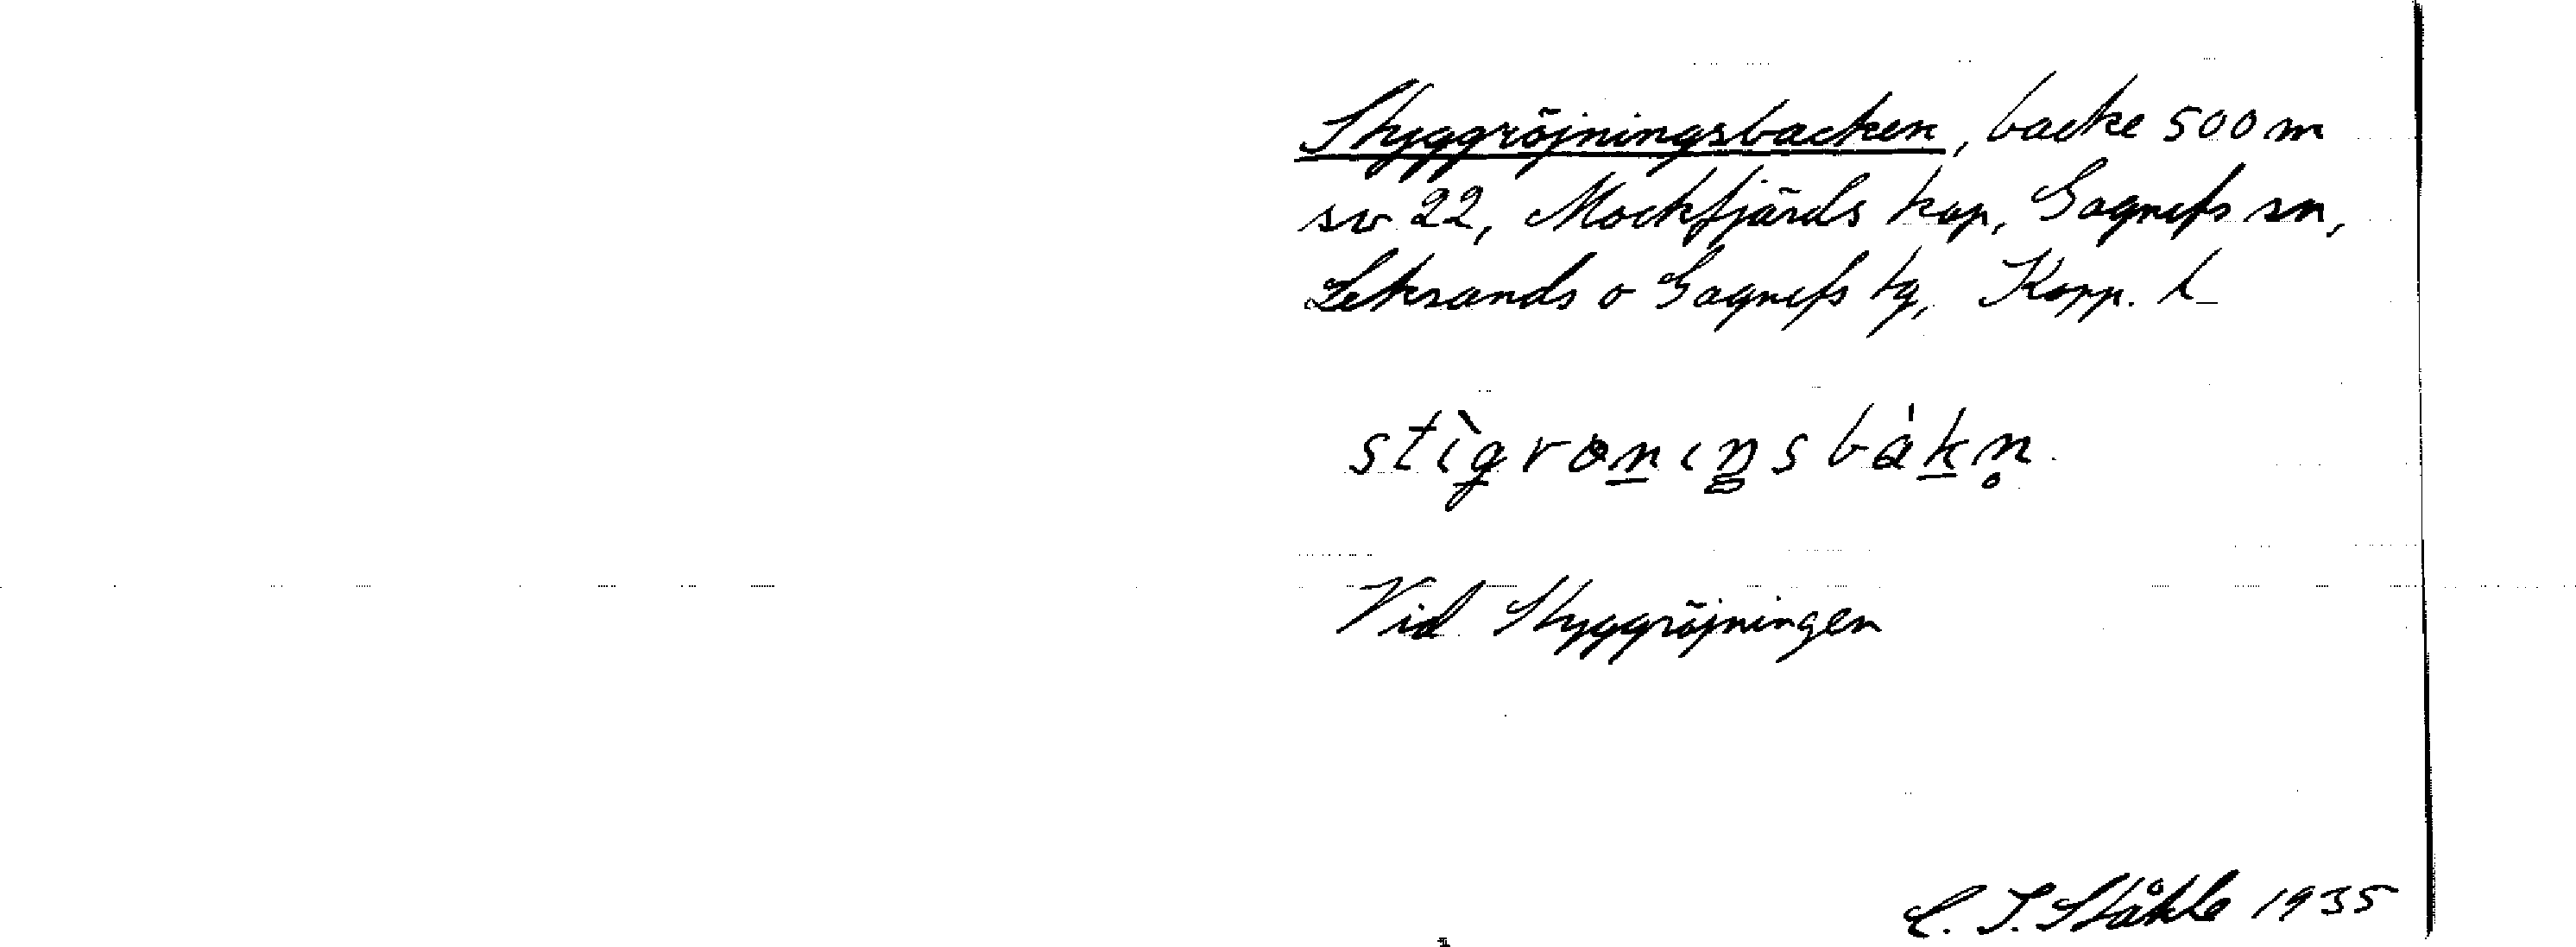 Styggröjningsbacken, backe 500 m
sv 22, Mockfjärds kap, Gagnefs sn,
Leksands o Gagnefs tg, Kopp. l
stìgrɵnıŋsbàkn̥
Vid Styggröjningen
C. I. Ståhle 1935